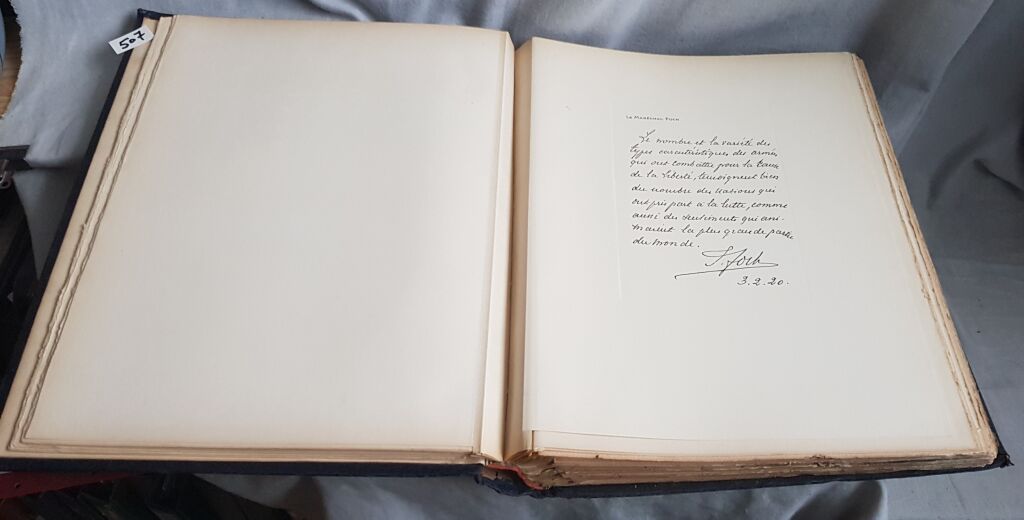 507
LE MARÉCHAL FOCH
Le nombre et la variété des
types caractéristiques des armées
qui ont combattu pour la cause
de la liberté, témoignent bien
du nombre des nations qui
ont pris part à la lutte, comme
aussi des sentiments qui ani-
maient la plus grande partie
du monde.
F. Foch
3.2.20.